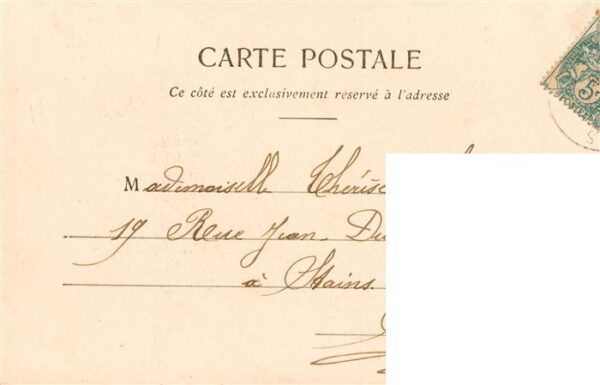 CARTE POSTALE
Ce côté est exclusivement reservé à l'adresse
Mademoiselle Thérèse
19 Rue Jean
à Stains.
5